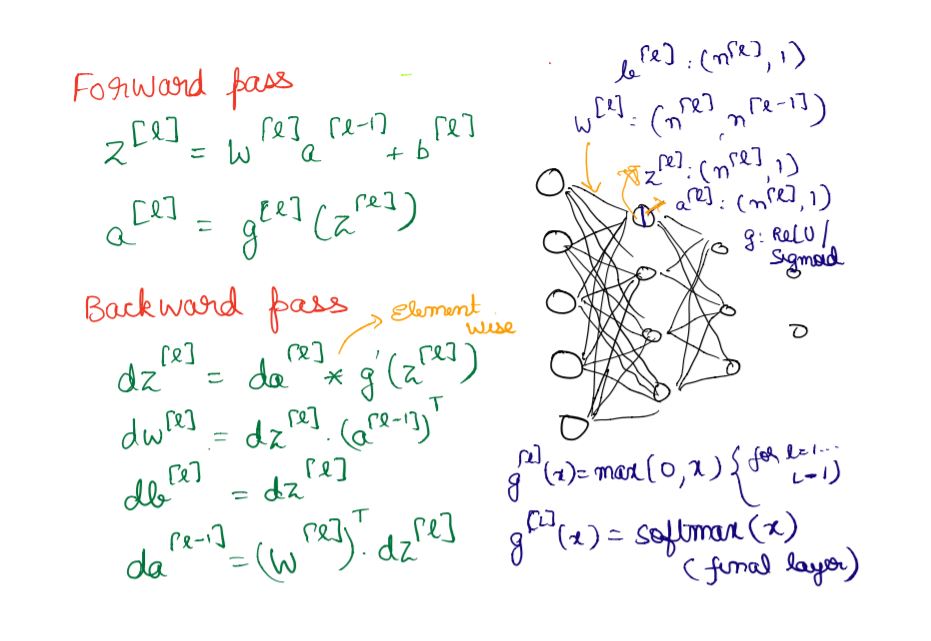 Forward pass
z[l] = W[l] a[l-1] + b[l]
a[l] = g[l](z[l])
Backward pass
Element
wise
dz[l] = da[l] * g'(z[l])
dw[l] = dz[l] . (a[l-1])T
db[l] = dz[l]
da[l-1] = (W[l])T . dz[l]
b[l] : (n[l], 1)
W[l] : (n[l], n[l-1])
z[l] : (n[l], 1)
a[l] : (n[l], 1)
g: ReLU/
Sigmoid
g[l](x) = max(0, x) { for l=1...
L-1)
g[L](x) = softmax(x)
(final layer)